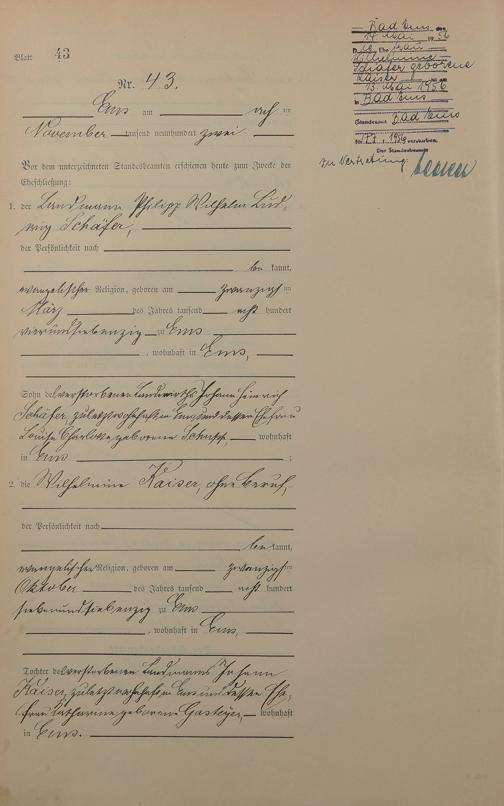 Blatt 43
Nr. 43.
Ems am acht ten
November tausend neunhundert zwei.
Vor dem unterzeichneten Standesbeamten erschienen heute zum Zwecke der
Eheschließung:
1. der Landmann Philipp Wilhelm Lud-
wig Schäfer,
der Persönlichkeit nach
be kannt,
evangelischer Religion, geboren am zwanzigsten
März des Jahres tausend acht hundert
vierundsiebenzig zu Ems
, wohnhaft in Ems,
Sohn des verstorbenen Landwirths Johann Heinrich
Schäfer, zuletzt wohnhaft in Ems und dessen Ehefrau
Louise Charlotte, geborene Schupp, wohnhaft
in Ems ;
2. die Wilhelmine Kaiser, ohne Beruf,
der Persönlichkeit nach
be kannt,
evangelischer Religion, geboren am zwanzigsten
Oktober des Jahres tausend acht hundert
siebenundsiebenzig zu Ems
, wohnhaft in Ems,
Tochter des verstorbenen Landmanns Johann
Kaiser, zuletzt wohnhaft in Ems und dessen Ehe-
frau Katharine geborene Gasteyer, wohnhaft
in Ems.
Bad Ems, den
14. Mai 1956
Ehefrau
Wilhelmine
Schäfer geborene
Kaiser ist am
13. Mai 1956
in Bad Ems
Standesamt Bad Ems
Nr. 1956 verstorben.
Der Standesbeamte
In Vertretung